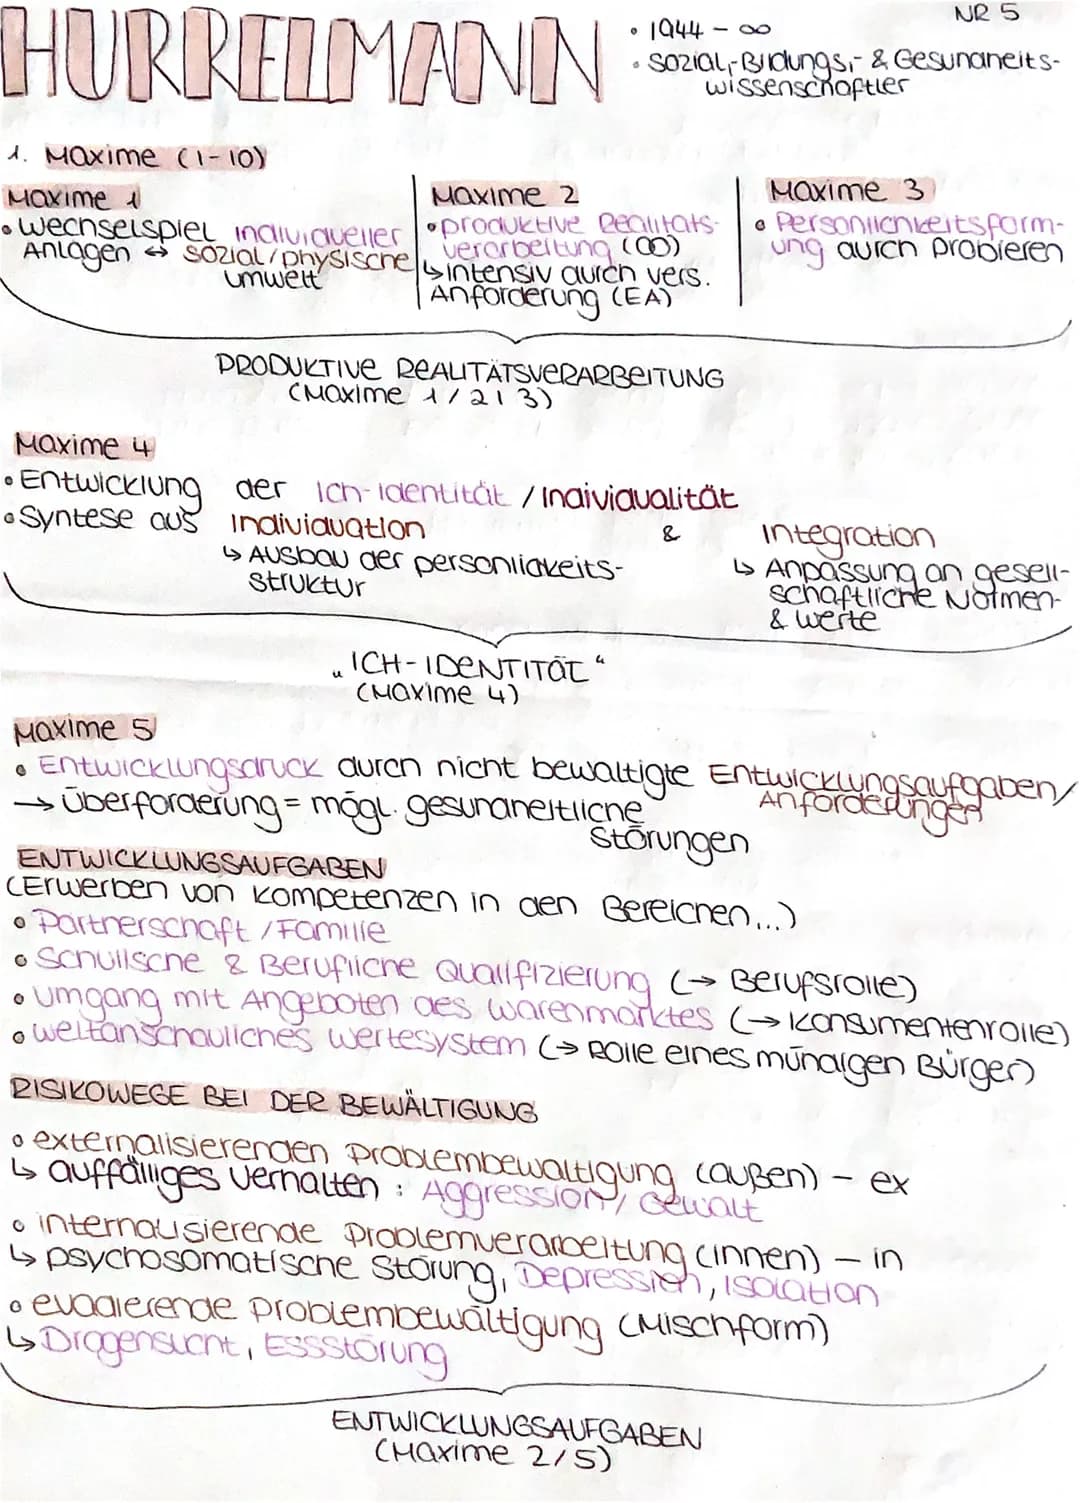 HURRELMANN
NR 5
• 1944 - ∞
• Sozial,- Bildungs,- & Gesundheits-
wissenschaftler
1. Maxime (1-10)
Maxime 1
• Wechselspiel individueller
Anlagen ↔ sozial/physische
umwelt
Maxime 2
• produktive Realitäts-
verarbeitung (∞)
↳ intensiv durch vers.
Anforderung (EA)
Maxime 3
• Persönlichkeitsform-
ung durch probieren
PRODUKTIVE REALITÄTSVERARBEITUNG
(Maxime 1/2/3)
Maxime 4
• Entwicklung der Ich-identität / Individualität
• Syntese aus Individuation & Integration
↳ Ausbau der persönlickeits-
struktur
↳ Anpassung an gesell-
schaftliche Normen-
& werte
„ICH-IDENTITÄT“
(Maxime 4)
Maxime 5
• Entwicklungsdruck durch nicht bewältigte Entwicklungsaufgaben/
Anforderungen
→ Überforderung = mögl. gesundheitliche
Störungen
ENTWICKLUNGSAUFGABEN
(Erwerben von Kompetenzen in den Bereichen...)
• Partnerschaft / Familie
• Schulische & Berufliche Qualifizierung (→ Berufsrolle)
• Umgang mit Angeboten des Warenmarktes (→ Konsumentenrolle)
• weltanschauliches Wertesystem (→ Rolle eines mündigen Bürger)
RISIKOWEGE BEI DER BEWÄLTIGUNG
• externalisierenden Problembewältigung (außen) - ex
↳ auffälliges Verhalten : Aggression/ Gewalt
• internalisierende Problemverarbeitung (innen) - in
↳ psychosomatische Störung, Depressien, Isolation
• evadierende Problembewältigung (Mischform)
↳ Drogensucht, Essstörung
ENTWICKLUNGSAUFGABEN
(Maxime 2/5)